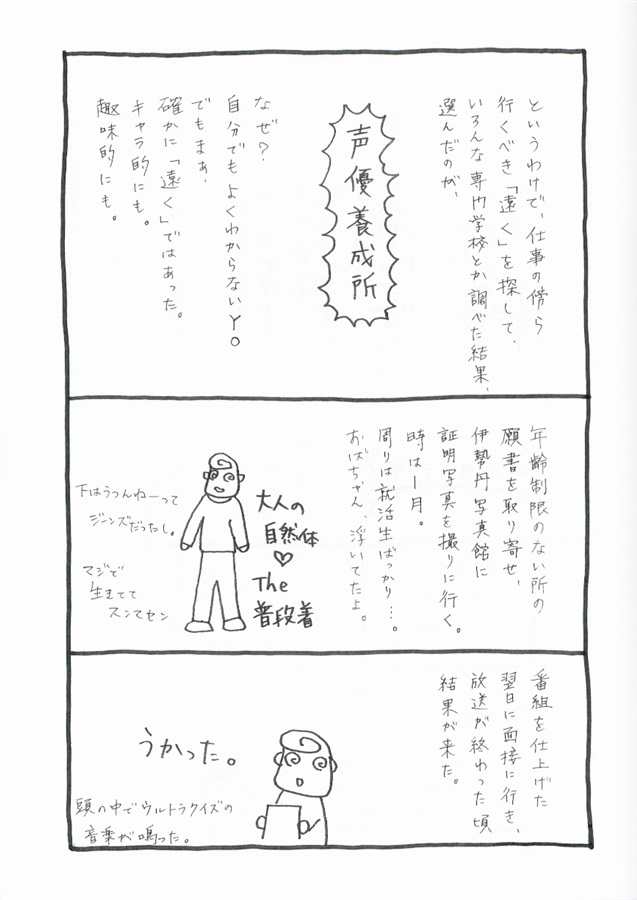 というわけで、仕事の傍ら
行くべき「遠く」を探して、
いろんな専門学校とか調べた結果、
選んだのが、
声優養成所
なぜ?
自分でもよくわからないYO
でもまぁ、
確かに「遠く」ではあった。
キャラ的にも。
趣味的にも。
年齢制限のない所の
願書を取り寄せ、
伊勢丹写真館に
証明写真を撮りに行く。
時は1月。
周りは就活生ばっかり…。
おばちゃん、浮いてたよ。
大人の
自然体
♡
The
普段着
下はうつんねーって
ジーンズだったし。
マジで
生きてて
スンマセン
番組を仕上げた
翌日に面接に行き、
放送が終わった頃
結果が来た。
うかった。
頭の中でウルトラクイズの
音楽が鳴った。